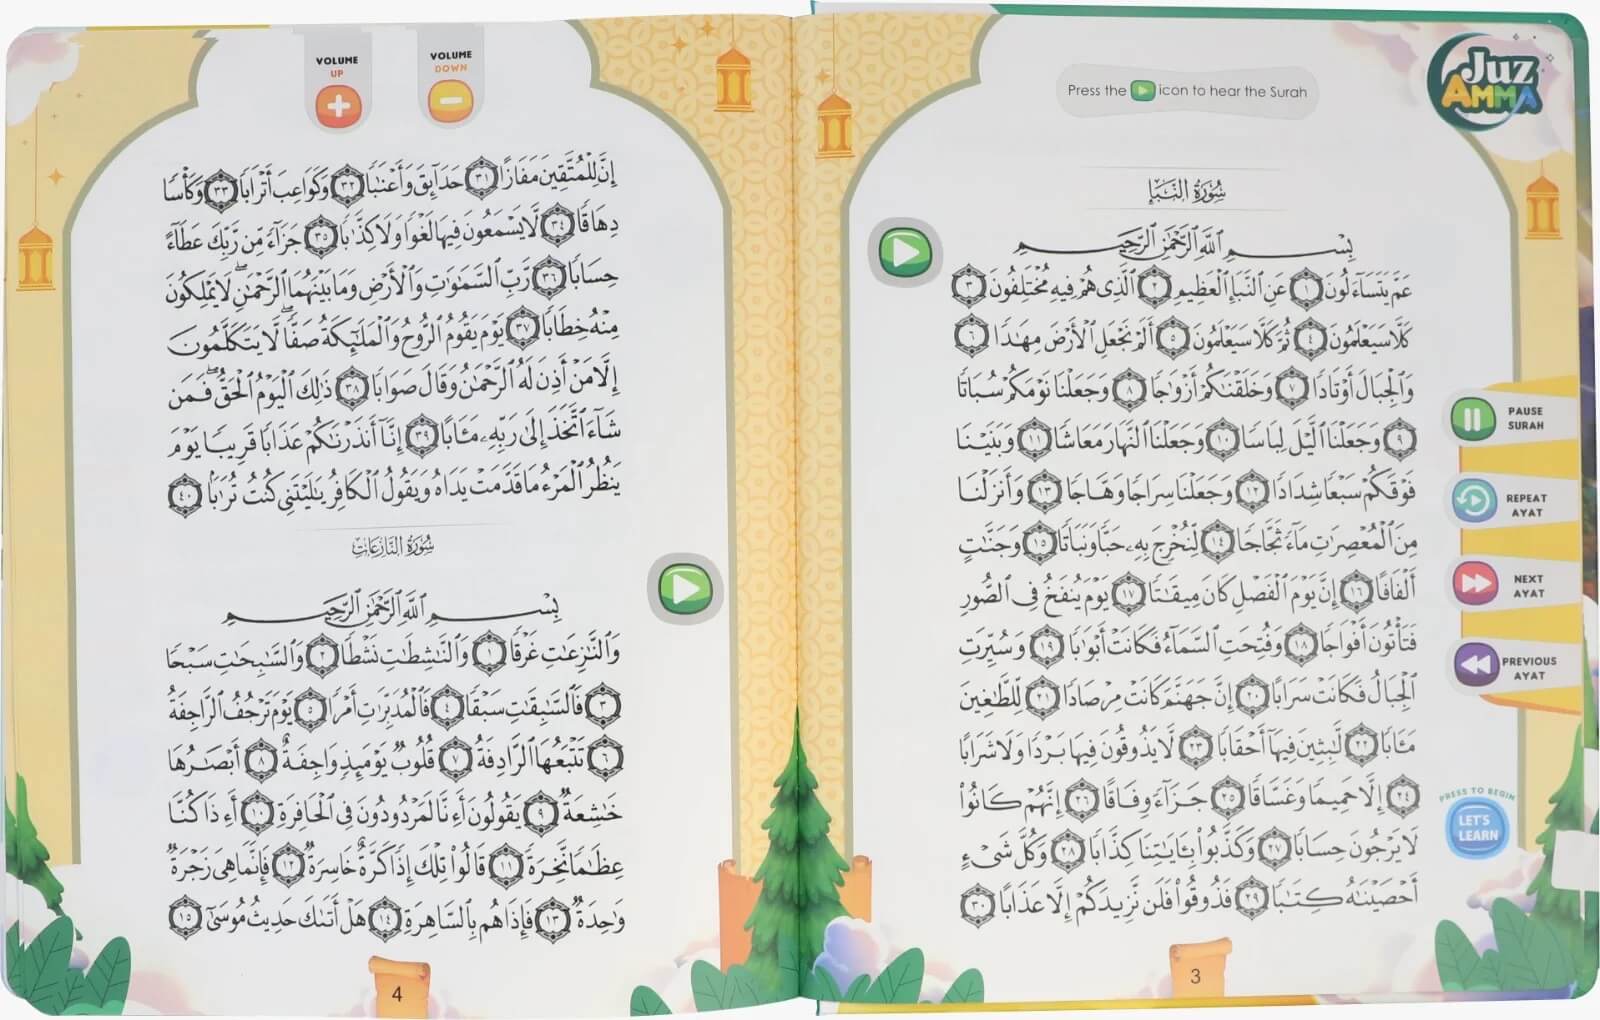 Juz
AMMA
Press the icon to hear the Surah
سُورَةُ النَّبَإِ
بِسْمِ اللَّهِ الرَّحْمَٰنِ الرَّحِيمِ
عَمَّ يَتَسَاءَلُونَ ١ عَنِ النَّبَإِ الْعَظِيمِ ٢ الَّذِى هُمْ فِيهِ مُخْتَلِفُونَ ٣
كَلَّا سَيَعْلَمُونَ ٤ ثُمَّ كَلَّا سَيَعْلَمُونَ ٥ أَلَمْ نَجْعَلِ الْأَرْضَ مِهَٰدًا ٦
وَالْجِبَالَ أَوْتَادًا ٧ وَخَلَقْنَٰكُمْ أَزْوَٰجًا ٨ وَجَعَلْنَا نَوْمَكُمْ سُبَاتًا
٩ وَجَعَلْنَا الَّيْلَ لِبَاسًا ١٠ وَجَعَلْنَا النَّهَارَ مَعَاشًا ١١ وَبَنَيْنَا
فَوْقَكُمْ سَبْعًا شِدَادًا ١٢ وَجَعَلْنَا سِرَاجًا وَهَّاجًا ١٣ وَأَنزَلْنَا
مِنَ الْمُعْصِرَٰتِ مَآءً ثَجَّاجًا ١٤ لِّنُخْرِجَ بِهِۦ حَبًّا وَنَبَاتًا ١٥ وَجَنَّٰتٍ
أَلْفَافًا ١٦ إِنَّ يَوْمَ الْفَصْلِ كَانَ مِيقَٰتًا ١٧ يَوْمَ يُنفَخُ فِى الصُّورِ
فَتَأْتُونَ أَفْوَاجًا ١٨ وَفُتِحَتِ السَّمَآءُ فَكَانَتْ أَبْوَٰبًا ١٩ وَسُيِّرَتِ
الْجِبَالُ فَكَانَتْ سَرَابًا ٢٠ إِنَّ جَهَنَّمَ كَانَتْ مِرْصَادًا ٢١ لِّلطَّٰغِينَ
مَـَٔابًا ٢٢ لَّٰبِثِينَ فِيهَآ أَحْقَابًا ٢٣ لَّا يَذُوقُونَ فِيهَا بَرْدًا وَلَا شَرَابًا
٢٤ إِلَّا حَمِيمًا وَغَسَّاقًا ٢٥ جَزَآءً وِفَاقًا ٢٦ إِنَّهُمْ كَانُوا۟
لَا يَرْجُونَ حِسَابًا ٢٧ وَكَذَّبُوا۟ بِـَٔايَٰتِنَا كِذَّابًا ٢٨ وَكُلَّ شَىْءٍ
أَحْصَيْنَٰهُ كِتَٰبًا ٢٩ فَذُوقُوا۟ فَلَن نَّزِيدَكُمْ إِلَّا عَذَابًا ٣٠
PAUSE
SURAH
REPEAT
AYAT
NEXT
AYAT
PREVIOUS
AYAT
PRESS TO BEGIN
LET'S
LEARN
3
VOLUME
UP
VOLUME
DOWN
إِنَّ لِلْمُتَّقِينَ مَفَازًا ٣١ حَدَآئِقَ وَأَعْنَٰبًا ٣٢ وَكَوَاعِبَ أَتْرَابًا ٣٣ وَكَأْسًا
دِهَاقًا ٣٤ لَّا يَسْمَعُونَ فِيهَا لَغْوًا وَلَا كِذَّٰبًا ٣٥ جَزَآءً مِّن رَّبِّكَ عَطَآءً
حِسَابًا ٣٦ رَّبِّ السَّمَٰوَٰتِ وَالْأَرْضِ وَمَا بَيْنَهُمَا الرَّحْمَٰنِ ۖ لَا يَمْلِكُونَ
مِنْهُ خِطَابًا ٣٧ يَوْمَ يَقُومُ الرُّوحُ وَالْمَلَٰٓئِكَةُ صَفًّا ۖ لَّا يَتَكَلَّمُونَ
إِلَّا مَنْ أَذِنَ لَهُ الرَّحْمَٰنُ وَقَالَ صَوَابًا ٣٨ ذَٰلِكَ الْيَوْمُ الْحَقُّ ۖ فَمَن
شَآءَ اتَّخَذَ إِلَىٰ رَبِّهِۦ مَـَٔابًا ٣٩ إِنَّآ أَنذَرْنَٰكُمْ عَذَابًا قَرِيبًا يَوْمَ
يَنظُرُ الْمَرْءُ مَا قَدَّمَتْ يَدَاهُ وَيَقُولُ الْكَافِرُ يَٰلَيْتَنِى كُنتُ تُرَٰبًا ٤٠
سُورَةُ النَّازِعَاتِ
بِسْمِ اللَّهِ الرَّحْمَٰنِ الرَّحِيمِ
وَالنَّٰزِعَٰتِ غَرْقًا ١ وَالنَّٰشِطَٰتِ نَشْطًا ٢ وَالسَّٰبِحَٰتِ سَبْحًا
٣ فَالسَّٰبِقَٰتِ سَبْقًا ٤ فَالْمُدَبِّرَٰتِ أَمْرًا ٥ يَوْمَ تَرْجُفُ الرَّاجِفَةُ
٦ تَتْبَعُهَا الرَّادِفَةُ ٧ قُلُوبٌ يَوْمَئِذٍ وَاجِفَةٌ ٨ أَبْصَٰرُهَا
خَٰشِعَةٌ ٩ يَقُولُونَ أَءِنَّا لَمَرْدُودُونَ فِى الْحَافِرَةِ ١٠ أَءِذَا كُنَّا
عِظَٰمًا نَّخِرَةً ١١ قَالُوا۟ تِلْكَ إِذًا كَرَّةٌ خَاسِرَةٌ ١٢ فَإِنَّمَا هِىَ زَجْرَةٌ
وَٰحِدَةٌ ١٣ فَإِذَا هُم بِالسَّاهِرَةِ ١٤ هَلْ أَتَىٰكَ حَدِيثُ مُوسَىٰٓ ١٥
4